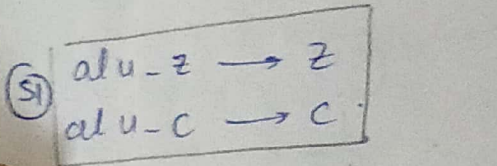 S1 alu-z → z
alu-c → c